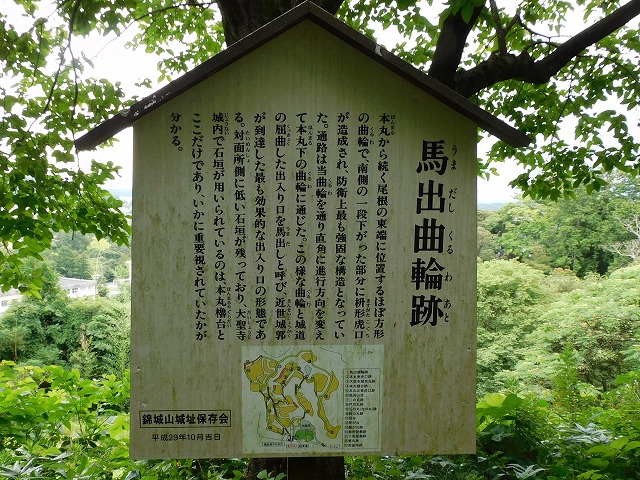 馬出曲輪跡
うま だし くる わ あと
本丸から続く尾根の東端に位置するほぼ方形
の曲輪で、南側の一段下がった部分に枡形虎口
が造成され、防衛上最も強固な構造となってい
た。通路は当曲輪を通り直角に進行方向を変え
て本丸下の曲輪に通じた。この様な曲輪と城道
の屈曲した出入り口を馬出しと呼び、近世城郭
が到達した最も効果的な出入り口の形態であ
る。対面所側に低い石垣が残っており、大聖寺
城内で石垣が用いられているのは本丸櫓台と
ここだけであり、いかに重要視されていたかが
分かる。
錦城山城址保存会
平成29年10月吉日